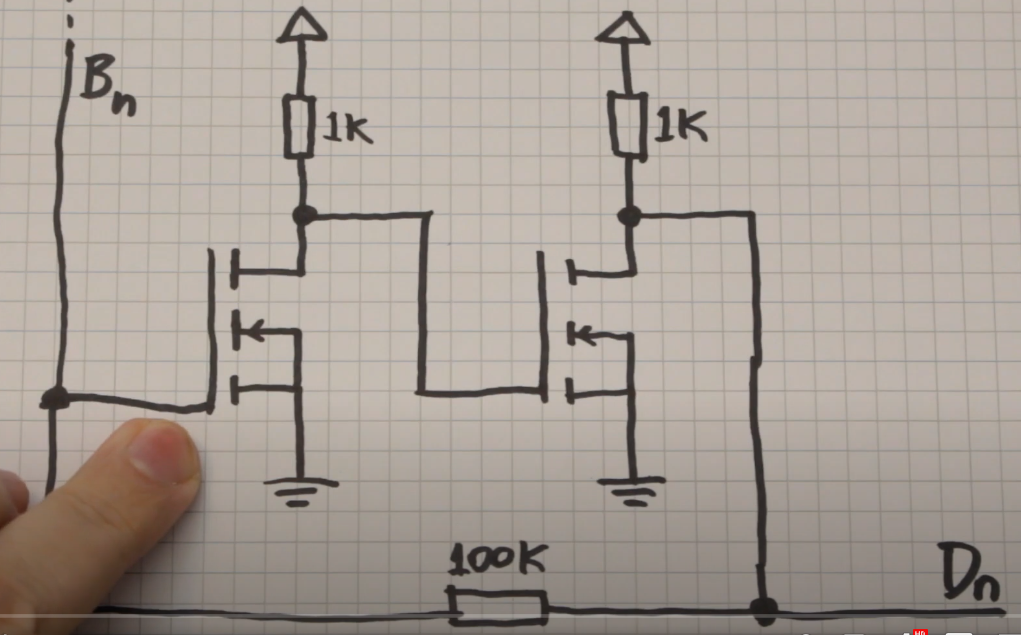 Bn
1K
1K
100K
Dn
HD